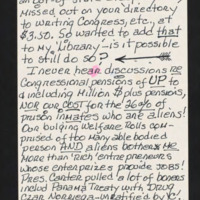 missed out on your directory
to writing Congress, etc., at
$3.50. So wanted to add that
to my "Library" — is it possible
to still do so?
I never hear discussions re
Congressional pensions of UP to
& including Million $ plus pensions,
NOR our COST for the 26% of
prison inmates who are aliens!
Our bulging Welfare Rolls com-
prised of too many able bodied
person AND aliens bothers me
more than 'rich' entrepreneurs
whose enterprizes provide JOBS!
Pres. Carter pulled a lot of boners
includ Panama Treaty with "DRUG
Czar Noriega - unratified by "C"